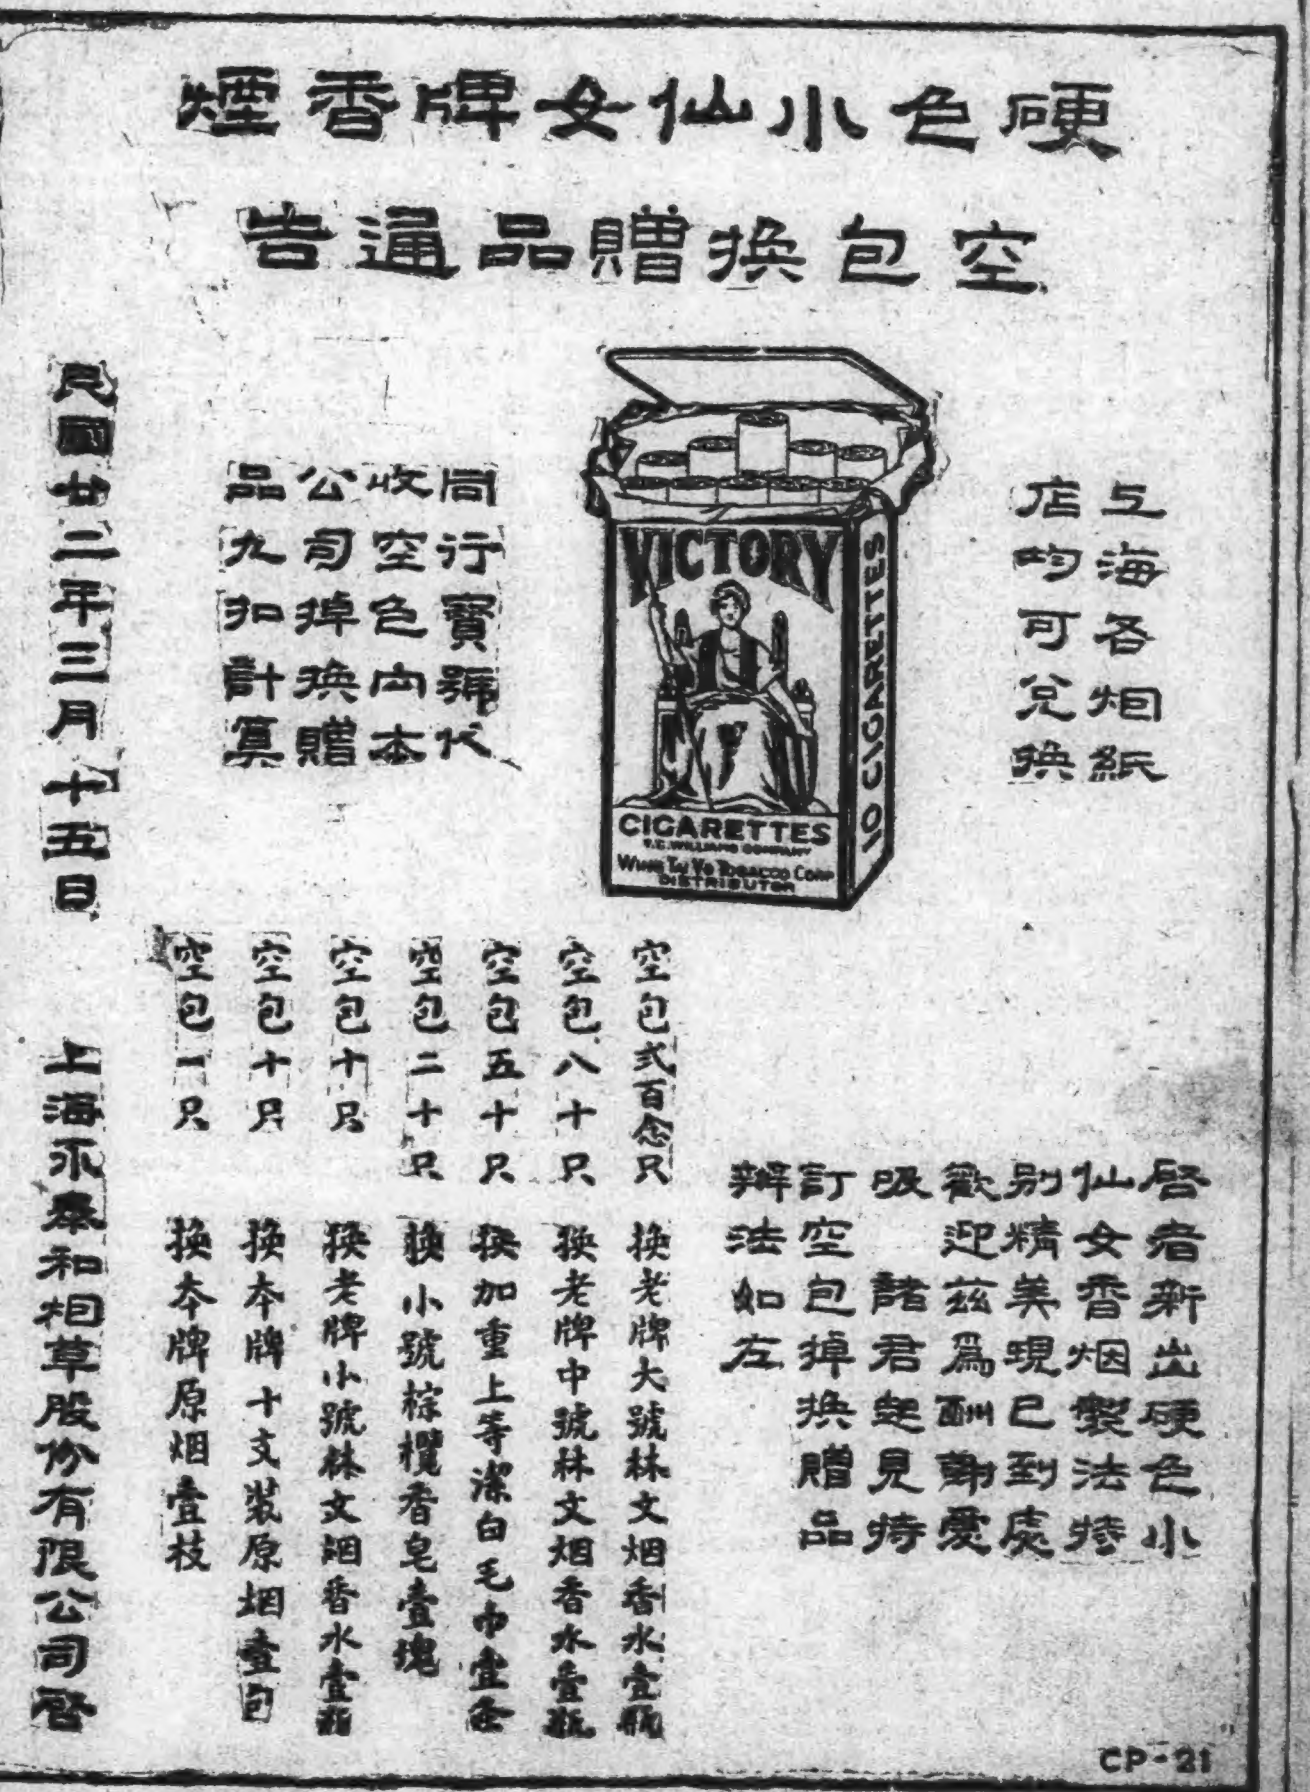 硬包小仙女牌香煙
空包換贈品通告
上海各烟紙
店均可兌換
VICTORY
CIGARETTES
T.C. WILLIAMS COMPANY
WING TAI VO TOBACCO CORP
DISTRIBUTOR
10 CIGARETTES
同行寶號代
收空包向本
公司掉換贈
品九扣計算
啓者新出硬包小
仙女香烟製法特
別精美現已到處
歡迎茲爲酬謝愛
吸 諸君起見特
訂空包掉換贈品
辦法如左
空包弍百念只 換老牌大號林文烟香水壹瓶
空包八十只 換老牌中號林文烟香水壹瓶
空包五十只 換加重上等潔白毛巾壹條
空包二十只 換小號棕欖香皂壹塊
空包十只 換老牌小號林文烟香水壹瓶
空包十只 換本牌十支裝原烟壹包
空包一只 換本牌原烟壹枝
民國廿二年三月十五日 上海永泰和烟草股份有限公司啓
CP-21